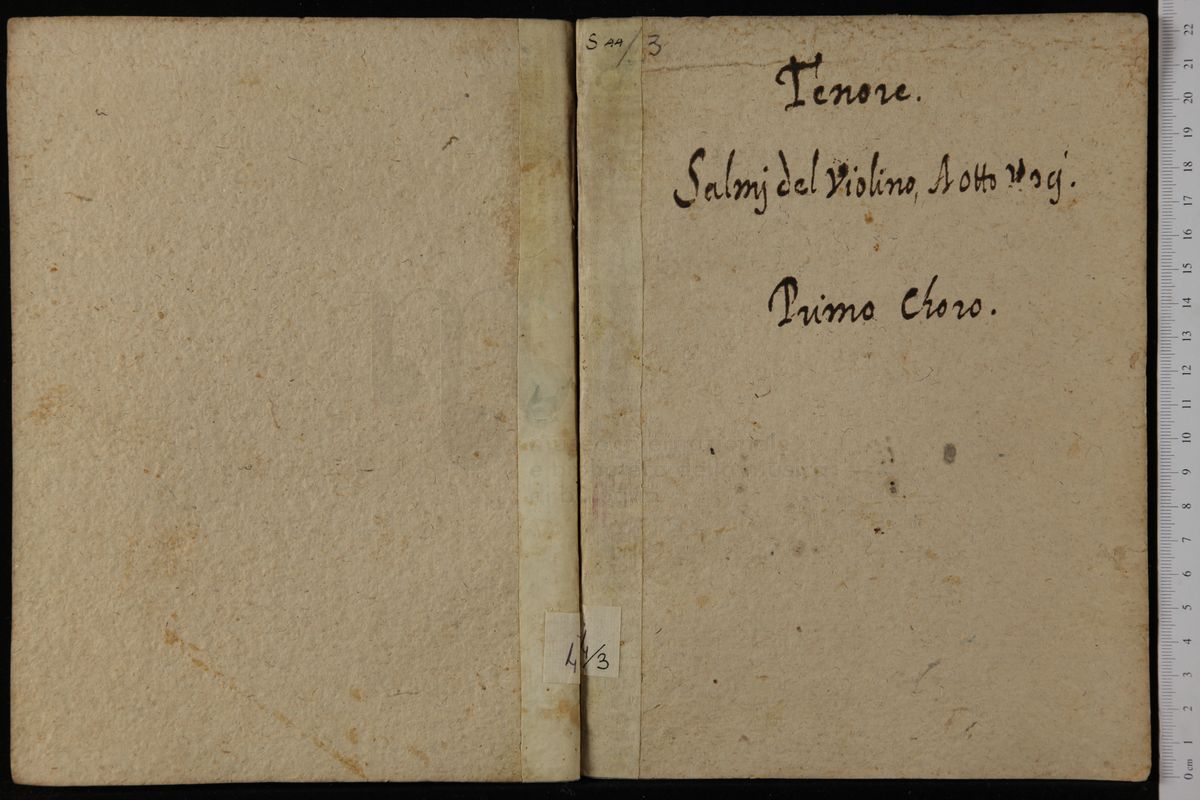 S 44/3
Tenore.
Salmj del Violino, A otto
Primo Choro.
44/3
22
21
20
19
18
17
16
15
14
13
12
11
10
9
8
7
6
5
4
3
2
1
0 cm